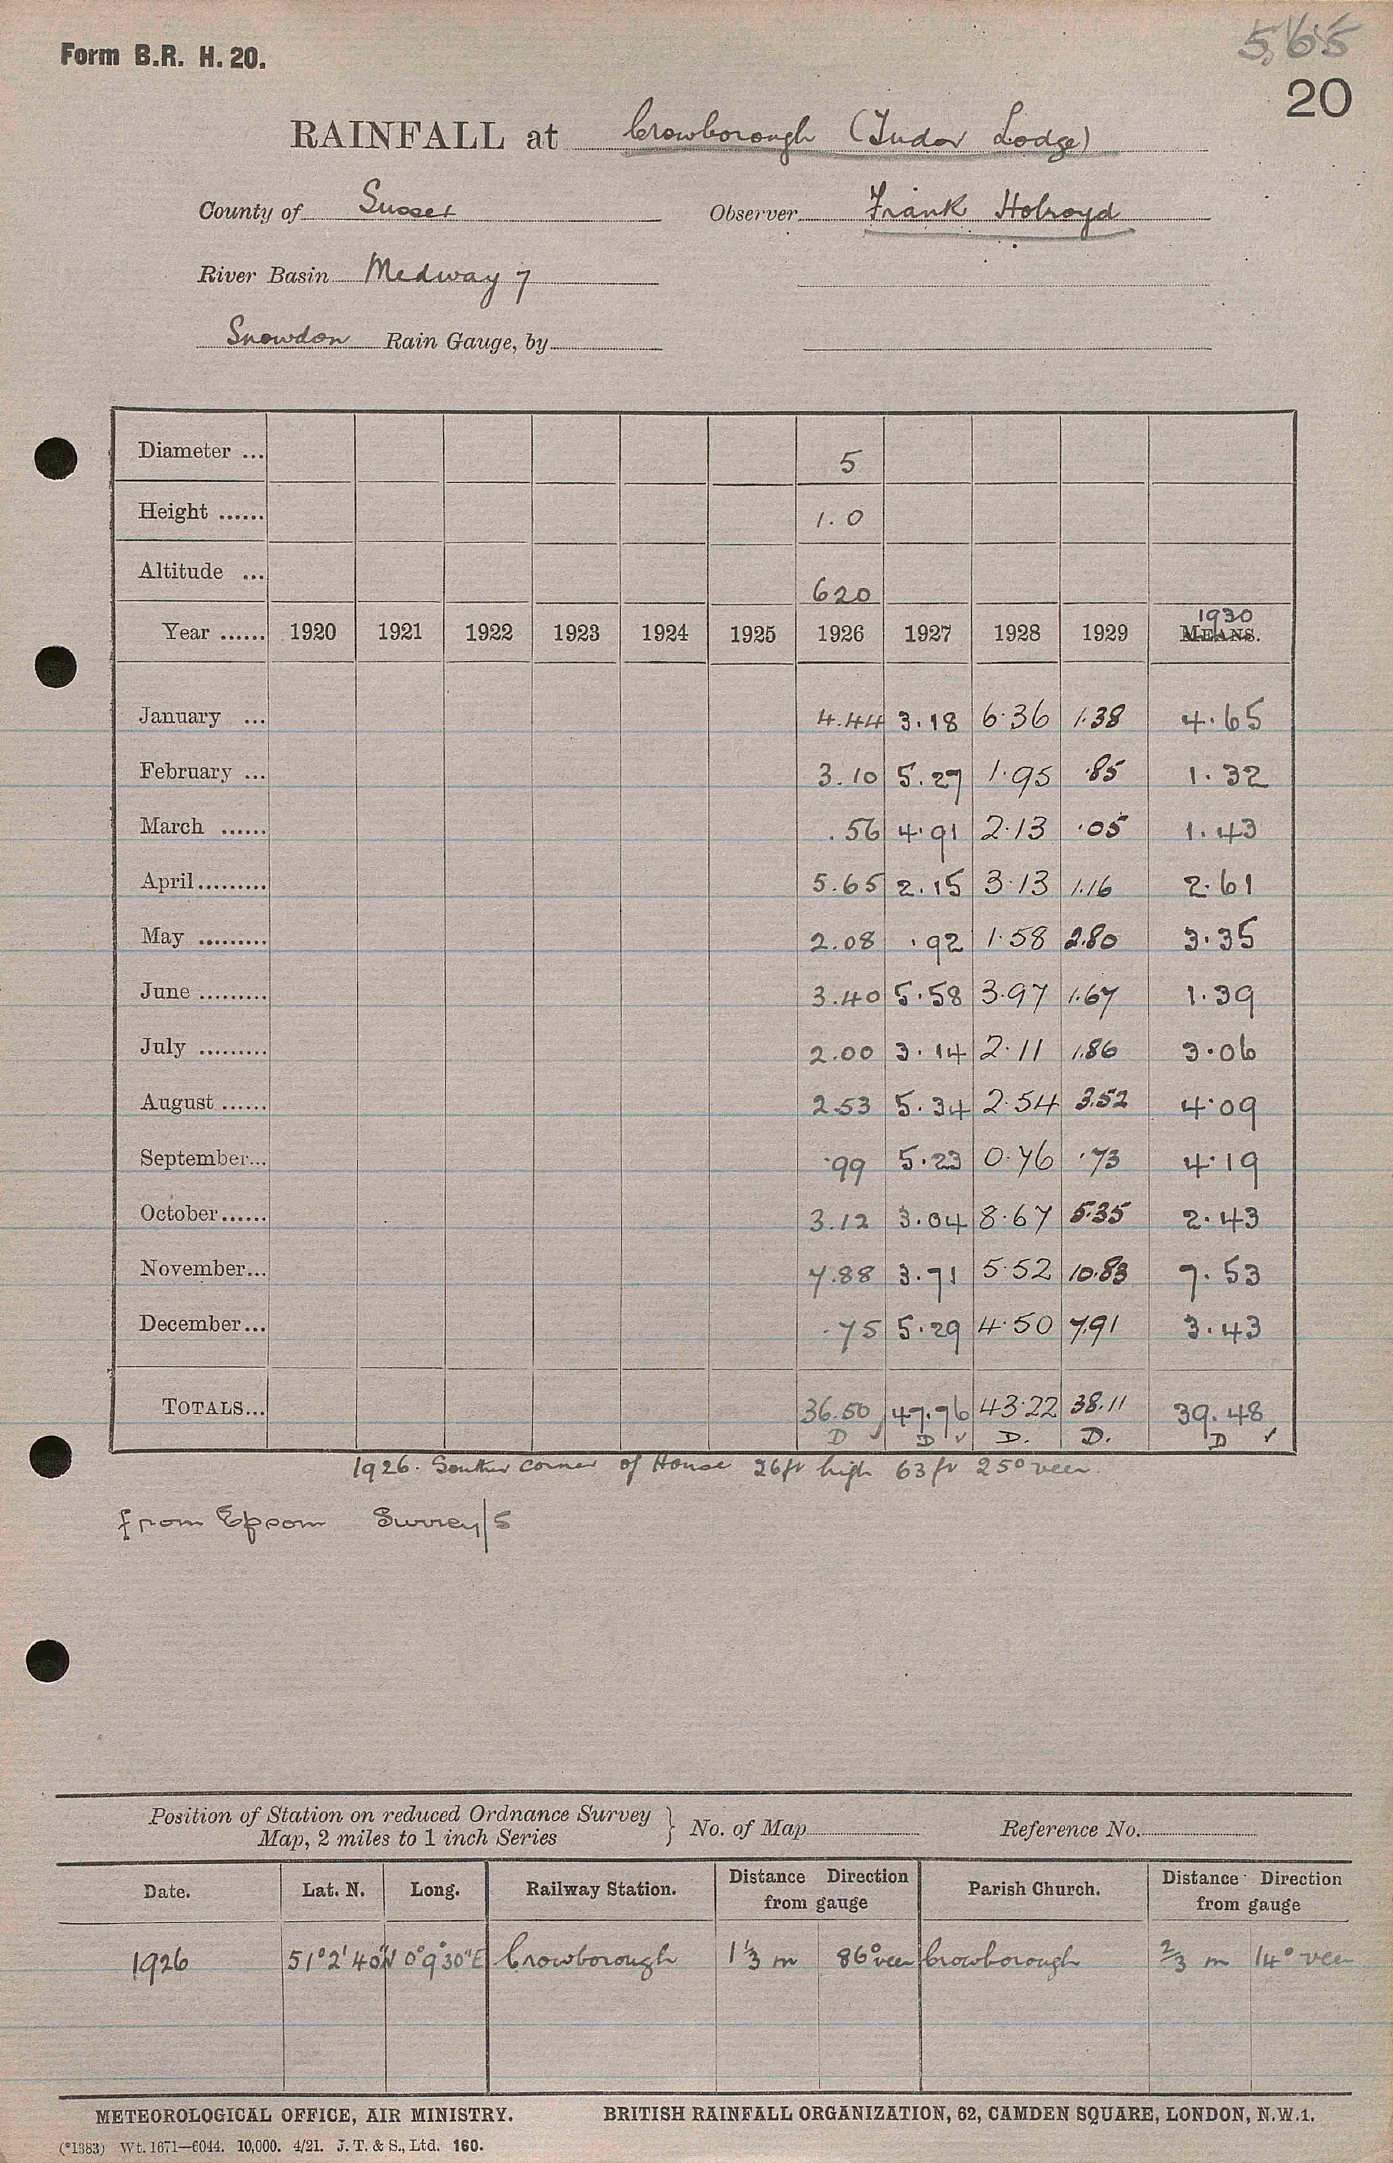 565
Form B.R. H. 20.
20
RAINFALL at Crowborough (Tudor Lodge)
County of Sussex Observer Frank Holroyd
River Basin Medway 7
Snowdon Rain Gauge, by
Diameter ... 5
Height ...... 1.0
Altitude ... 620
Year ...... 1920 1921 1922 1923 1924 1925 1926 1927 1928 1929 1930 MEANS.
January ... 4.44 3.18 6.36 1.38 4.65
February ... 3.10 5.27 1.95 .85 1.32
March ...... .56 4.91 2.13 .05 1.43
April......... 5.65 2.15 3.13 1.16 2.61
May ......... 2.08 .92 1.58 2.80 3.35
June ......... 3.40 5.58 3.97 1.67 1.39
July ......... 2.00 3.14 2.11 1.86 3.06
August ...... 2.53 5.34 2.54 3.52 4.09
September... .99 5.23 0.76 .73 4.19
October...... 3.12 3.04 8.67 5.35 2.43
November... 7.88 3.71 5.52 10.83 7.53
December... .75 5.29 4.50 7.91 3.43
TOTALS... 36.50 47.76 43.22 38.11 39.48
D D ✓ D. D. D ✓
1926. Southern corner of House 26ft high 63ft 250° veer.
from Epsom Surrey/5
Position of Station on reduced Ordnance Survey
Map, 2 miles to 1 inch Series } No. of Map Reference No.
Date. Lat. N. Long. Railway Station. Distance Direction from gauge Parish Church. Distance Direction from gauge
1926 51°2'40"N 0°9'30"E Crowborough 1⅓ m 86° veer Crowborough ⅔ m 14° veer
METEOROLOGICAL OFFICE, AIR MINISTRY. BRITISH RAINFALL ORGANIZATION, 62, CAMDEN SQUARE, LONDON, N.W.1.
(*1383) Wt. 1671—6044. 10,000. 4/21. J. T. & S., Ltd. 160.